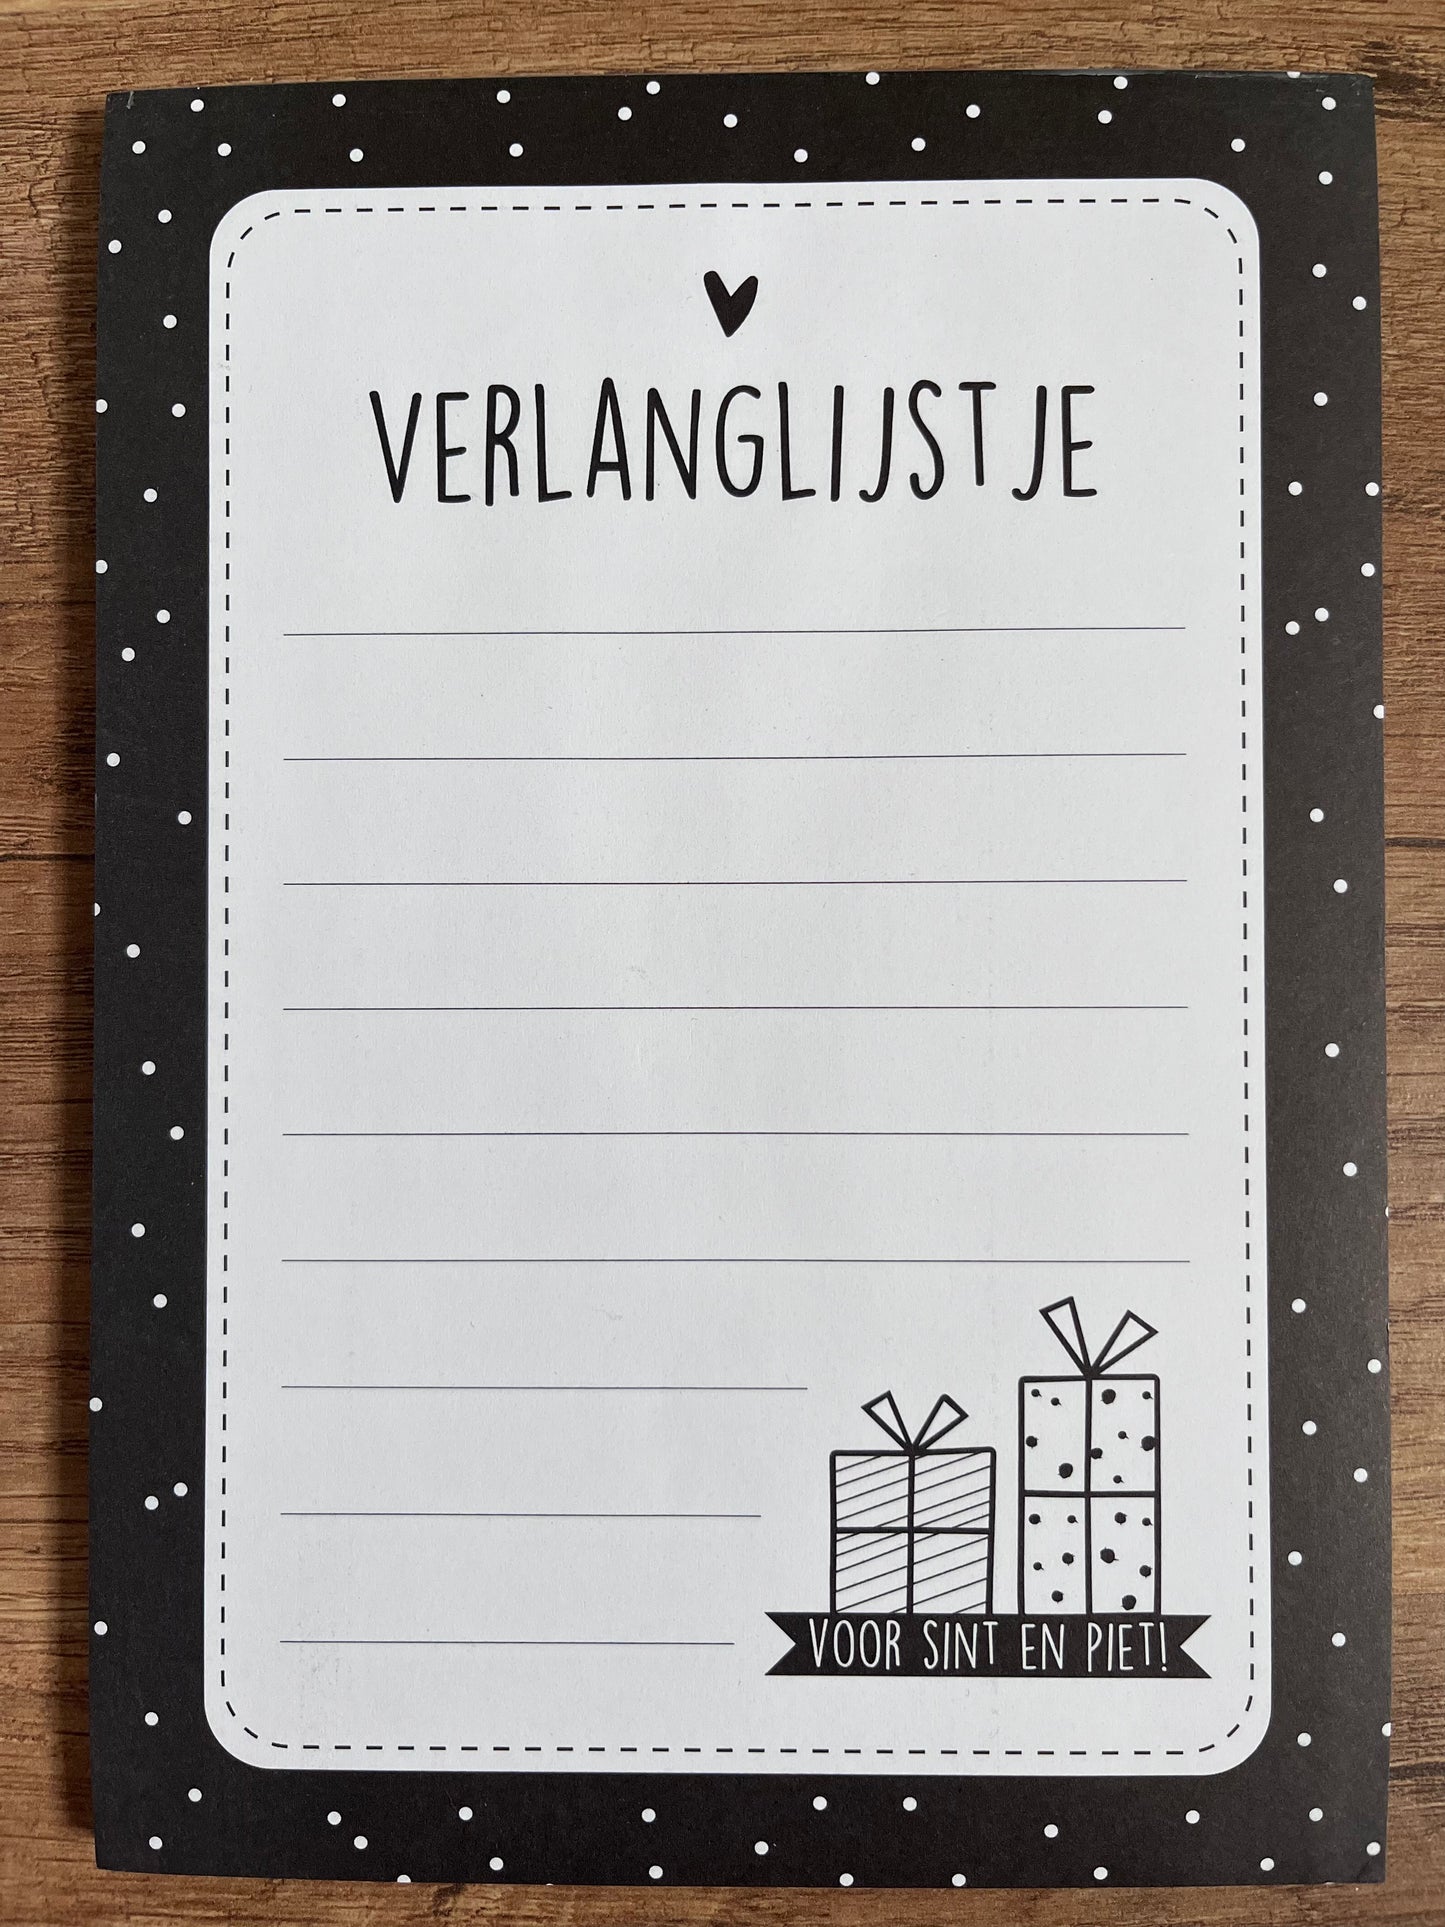 VERLANGLIJSTJE
VOOR SINT EN PIET!